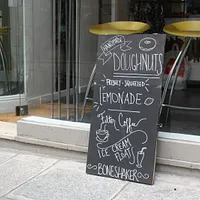 HOMEMADE
DOUGHNUTS
FRESHLY SQUEEZED
LEMONADE
Filter Coffee
ICE CREAM
FLOATS
BONESHAKER